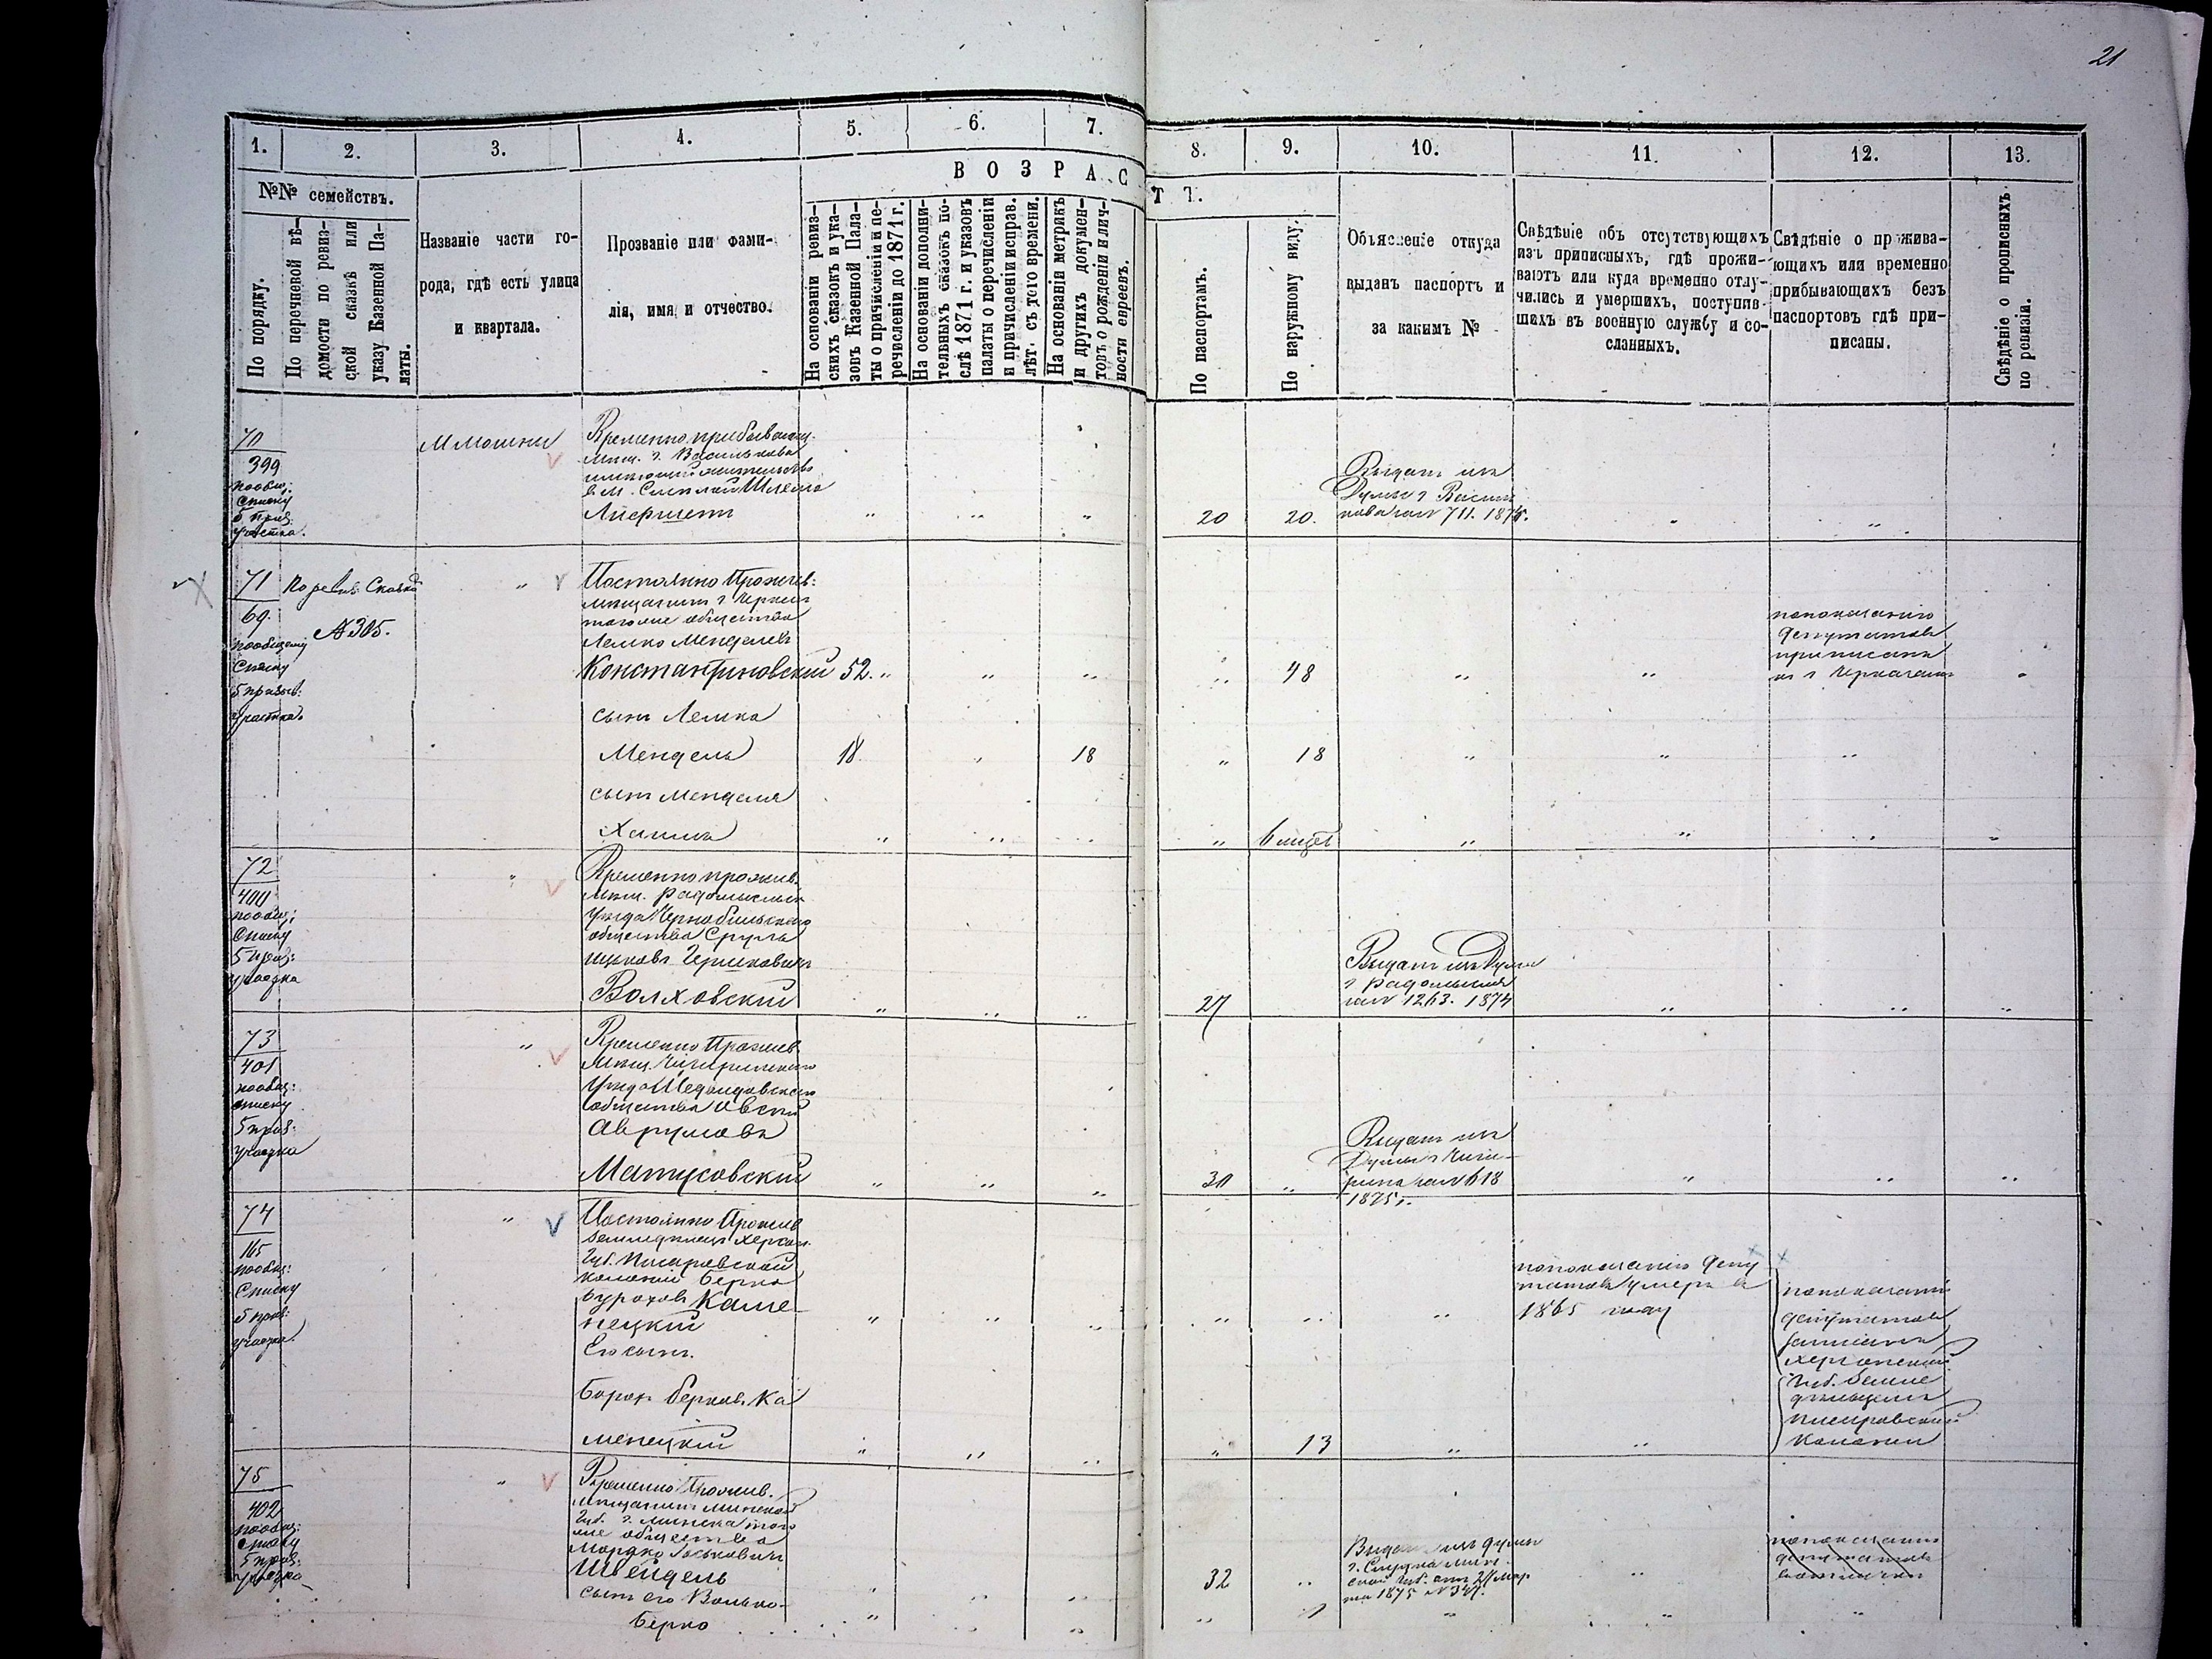 21
1.
2.
3.
4.
5.
6.
7.
8.
9.
10.
11.
12.
13.
ВОЗРАС
Т Ъ.
№№ семействъ.
По порядку.
По перечневой вѣ-
домости по ревиз-
ской сказкѣ или
указу Казенной Па-
латы.
Названіе части го-
рода, гдѣ есть улица
и квартала.
Прозваніе или фами-
лія, имя и отчество.
На основаніи ревиз-
скихъ сказокъ и ука-
зовъ Казенной Пала-
ты о причисленіи и пе-
речисленіи до 1871 г.
На основаніи дополни-
тельныхъ сказокъ по-
слѣ 1871 г. и указовъ
палаты о перечисленіи
и причисленіи исправ.
лѣт. съ того времени.
На основаніи метрикъ
и другихъ докумен-
товъ о рожденіи и лич-
ности евреевъ.
По паспортамъ.
По наружному виду.
Объясненіе откуда
выданъ паспортъ и
за какимъ №
Свѣдѣніе объ отсутствующихъ
изъ приписныхъ, гдѣ прожи-
ваютъ или куда временно отлу-
чились и умершихъ, поступив-
шихъ въ военную службу и со-
сланныхъ.
Свѣдѣніе о прожива-
ющихъ или временно
прибывающихъ безъ
паспортовъ гдѣ при-
писаны.
Свѣдѣніе о прописныхъ
по ревизіи.
70
399
пообщ:
списку
5 приз:
участка.
М Мошны
Временно прибывающ.
мѣщ. г. Василькова
имѣющій жительство
в м. Шлема
20
20.
Выданъ изъ
Думы г. Василь
кова за № 711. 187
71
69.
пообщему
списку
5 призыв:
участка.
По ревиз: Сказкѣ
№ 305.
Постоянно Прожив:
мѣщанинъ г. Черкасъ
того же общества
Лейко Менделевъ
Константиновскій
52.
48
попоказанію
депутатовъ
приписанъ
къ г. Черкасамъ
сынъ Лейка
Мендель
18
18
18
сынъ Менделя
Хаимъ
6 мѣсец
72
400
пообщ:
списку
5 приз:
участка
Временно прожив.
мѣщ. Радомысльск
уѣзда Чернобыльскаго
общества Сруль
Ицковъ
Волховскій
27
Выданъ изъ Думы
г. Радомысля
за № 1263. 1874
73
401
пообщ:
списку
5 приз:
участка
Временно Прожив
мѣщ. Чигиринскаго
уѣзда Медведовскаго
общества Овсій
Аврумовъ
Матусовскій
30
Выданъ изъ
Думы г. Чиги-
рина за № 618
1875 г.
74
165
пообщ:
списку
5 приз:
участка.
Постоянно Прожив
земледѣлецъ Херсон.
губ.
колоніи Берко
Бороховъ Каме-
нецкій
попоказанію депу
татовъ умеръ в
1865 году
Его сынъ.
Борох Берков. Ка
менецкій
13
попоказанію
депутатовъ
записанъ
Херсонской
губ. земле
дѣльцемъ
колоніи
75
402
пообщ:
списку
5 приз:
участка
Временно Прожив.
мѣщанинъ Минской
губ. г. Минска того
же общества
Мордко Іоськовичъ
Швендель
32
Выданъ изъ думы
г. Слуцка мин
ской губ. отъ 21 Мар
та 1875 № 347.
попоказанію
депутатовъ
сынъ его Волько-
Берко